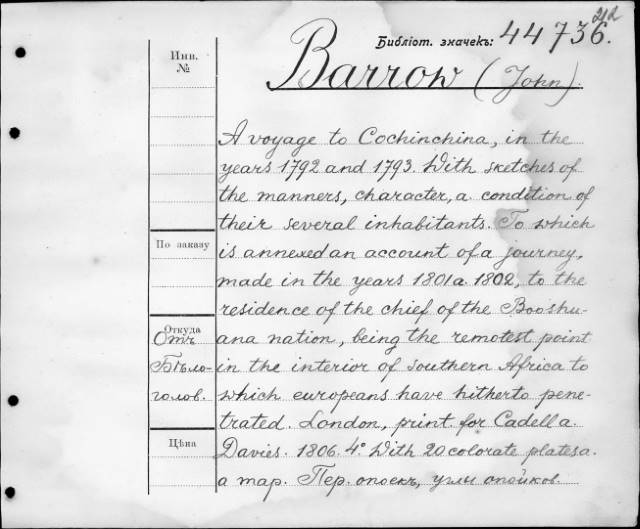 212
Библіот. значекъ: 44736.
Инв.
№
Barrow (John).
A voyage to Cochinchina, in the
years 1792 and 1793. With sketches of
the manners, character, a. condition of
their several inhabitants. To which
По заказу
is annexed an account of a journey,
made in the years 1801 a. 1802, to the
residence of the chief of the Booshu-
Откуда
Отъ
ana nation, being the remotest point
Бѣло-
in the interior of southern Africa to
голов.
which europeans have hitherto pene-
trated. London, print for Cadell a.
Цѣна
Davies. 1806. 4º. With 20 colorate plates a.
a map. Пер. опоекъ, углы опойков.